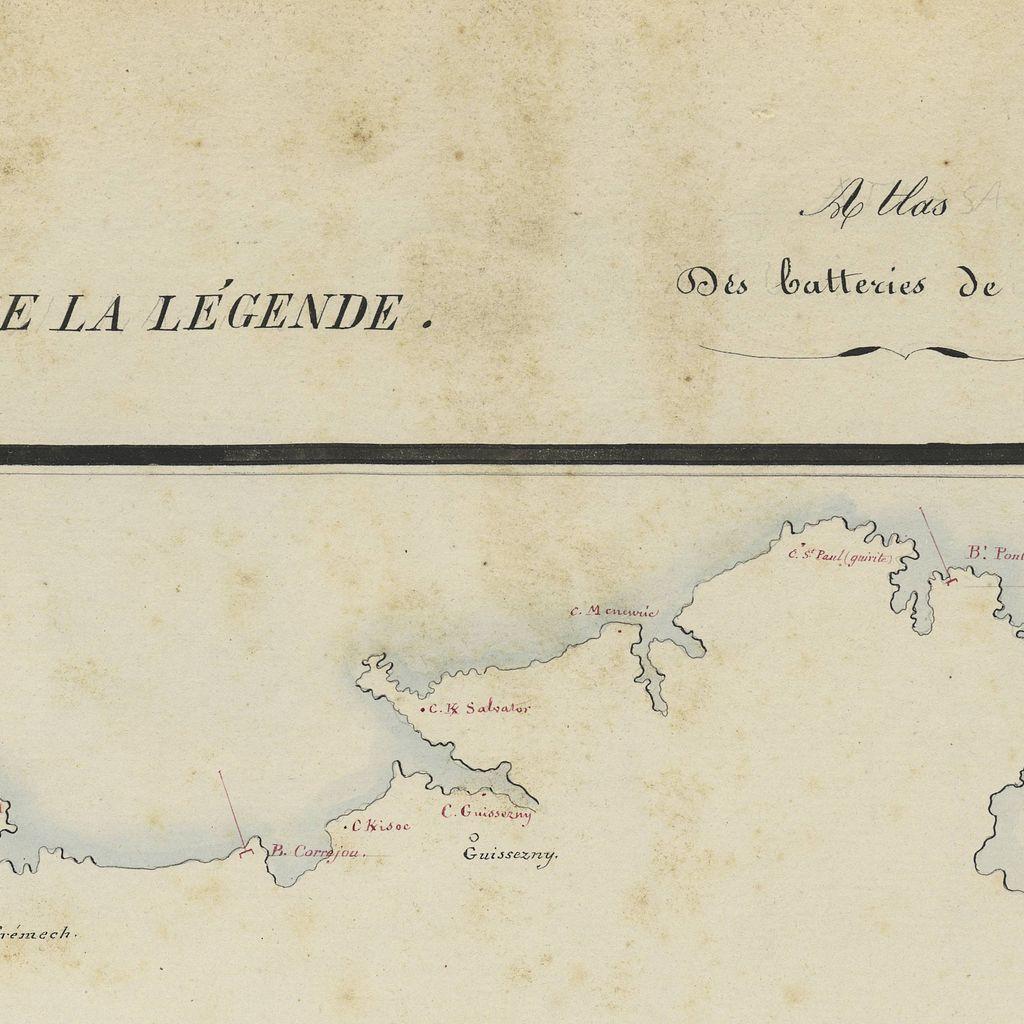 Atlas
Des batteries de
E LA LÉGENDE.
C. St Paul (guirite)
Bt. Pont
C. Meneuric
C. K Salvator
C. Guissezny
C Kisoc
B. Correjou.
Guissezny.
rémech.